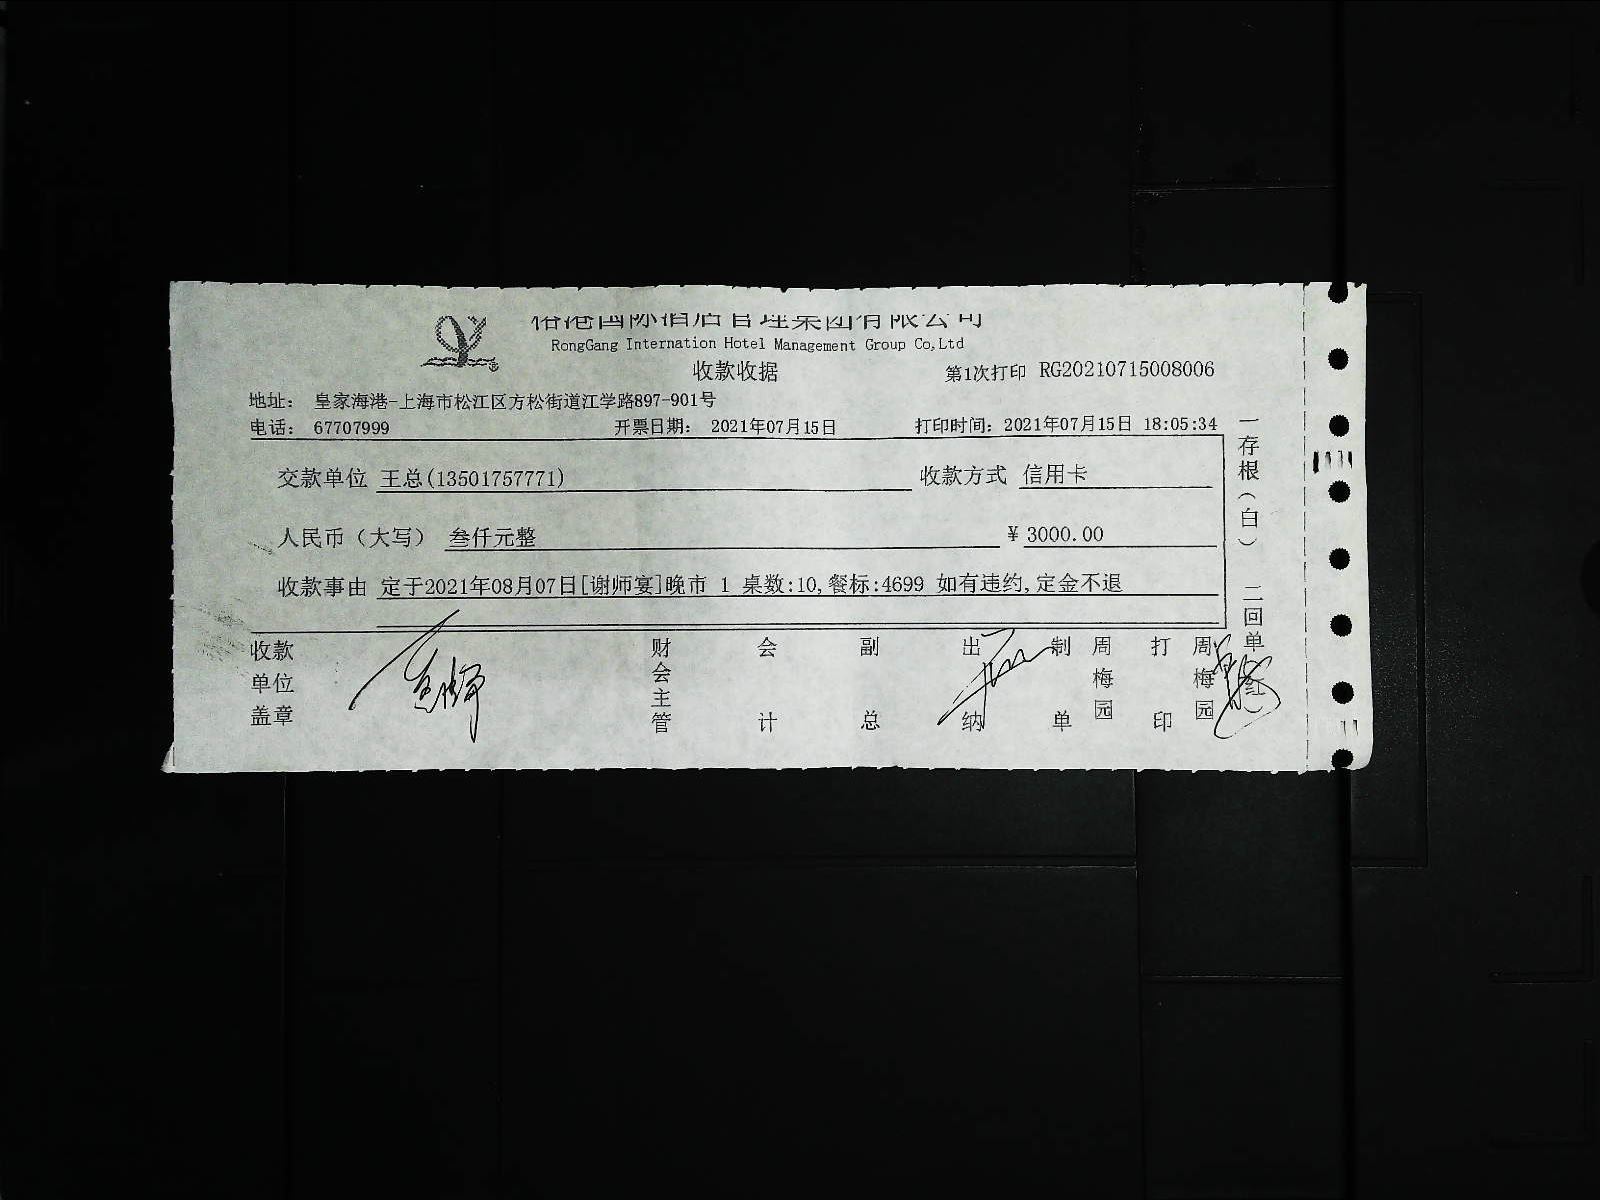 国际酒店管理集团有限公司
RongGang Internation Hotel Management Group Co,Ltd
收款收据
第1次打印 RG20210715008006
地址： 皇家海港-上海市松江区方松街道江学路897-901号
电话： 67707999 开票日期： 2021年07月15日 打印时间：2021年07月15日 18:05:34
交款单位 王总(13501757771) 收款方式 信用卡
人民币（大写） 叁仟元整 ￥3000.00
收款事由 定于2021年08月07日[谢师宴]晚市 1 桌数:10,餐标:4699 如有违约,定金不退
收款单位盖章
财会主管
会计
副总
出纳
制单
周梅园
打印
周梅园
一存根（白） 二回单（红）